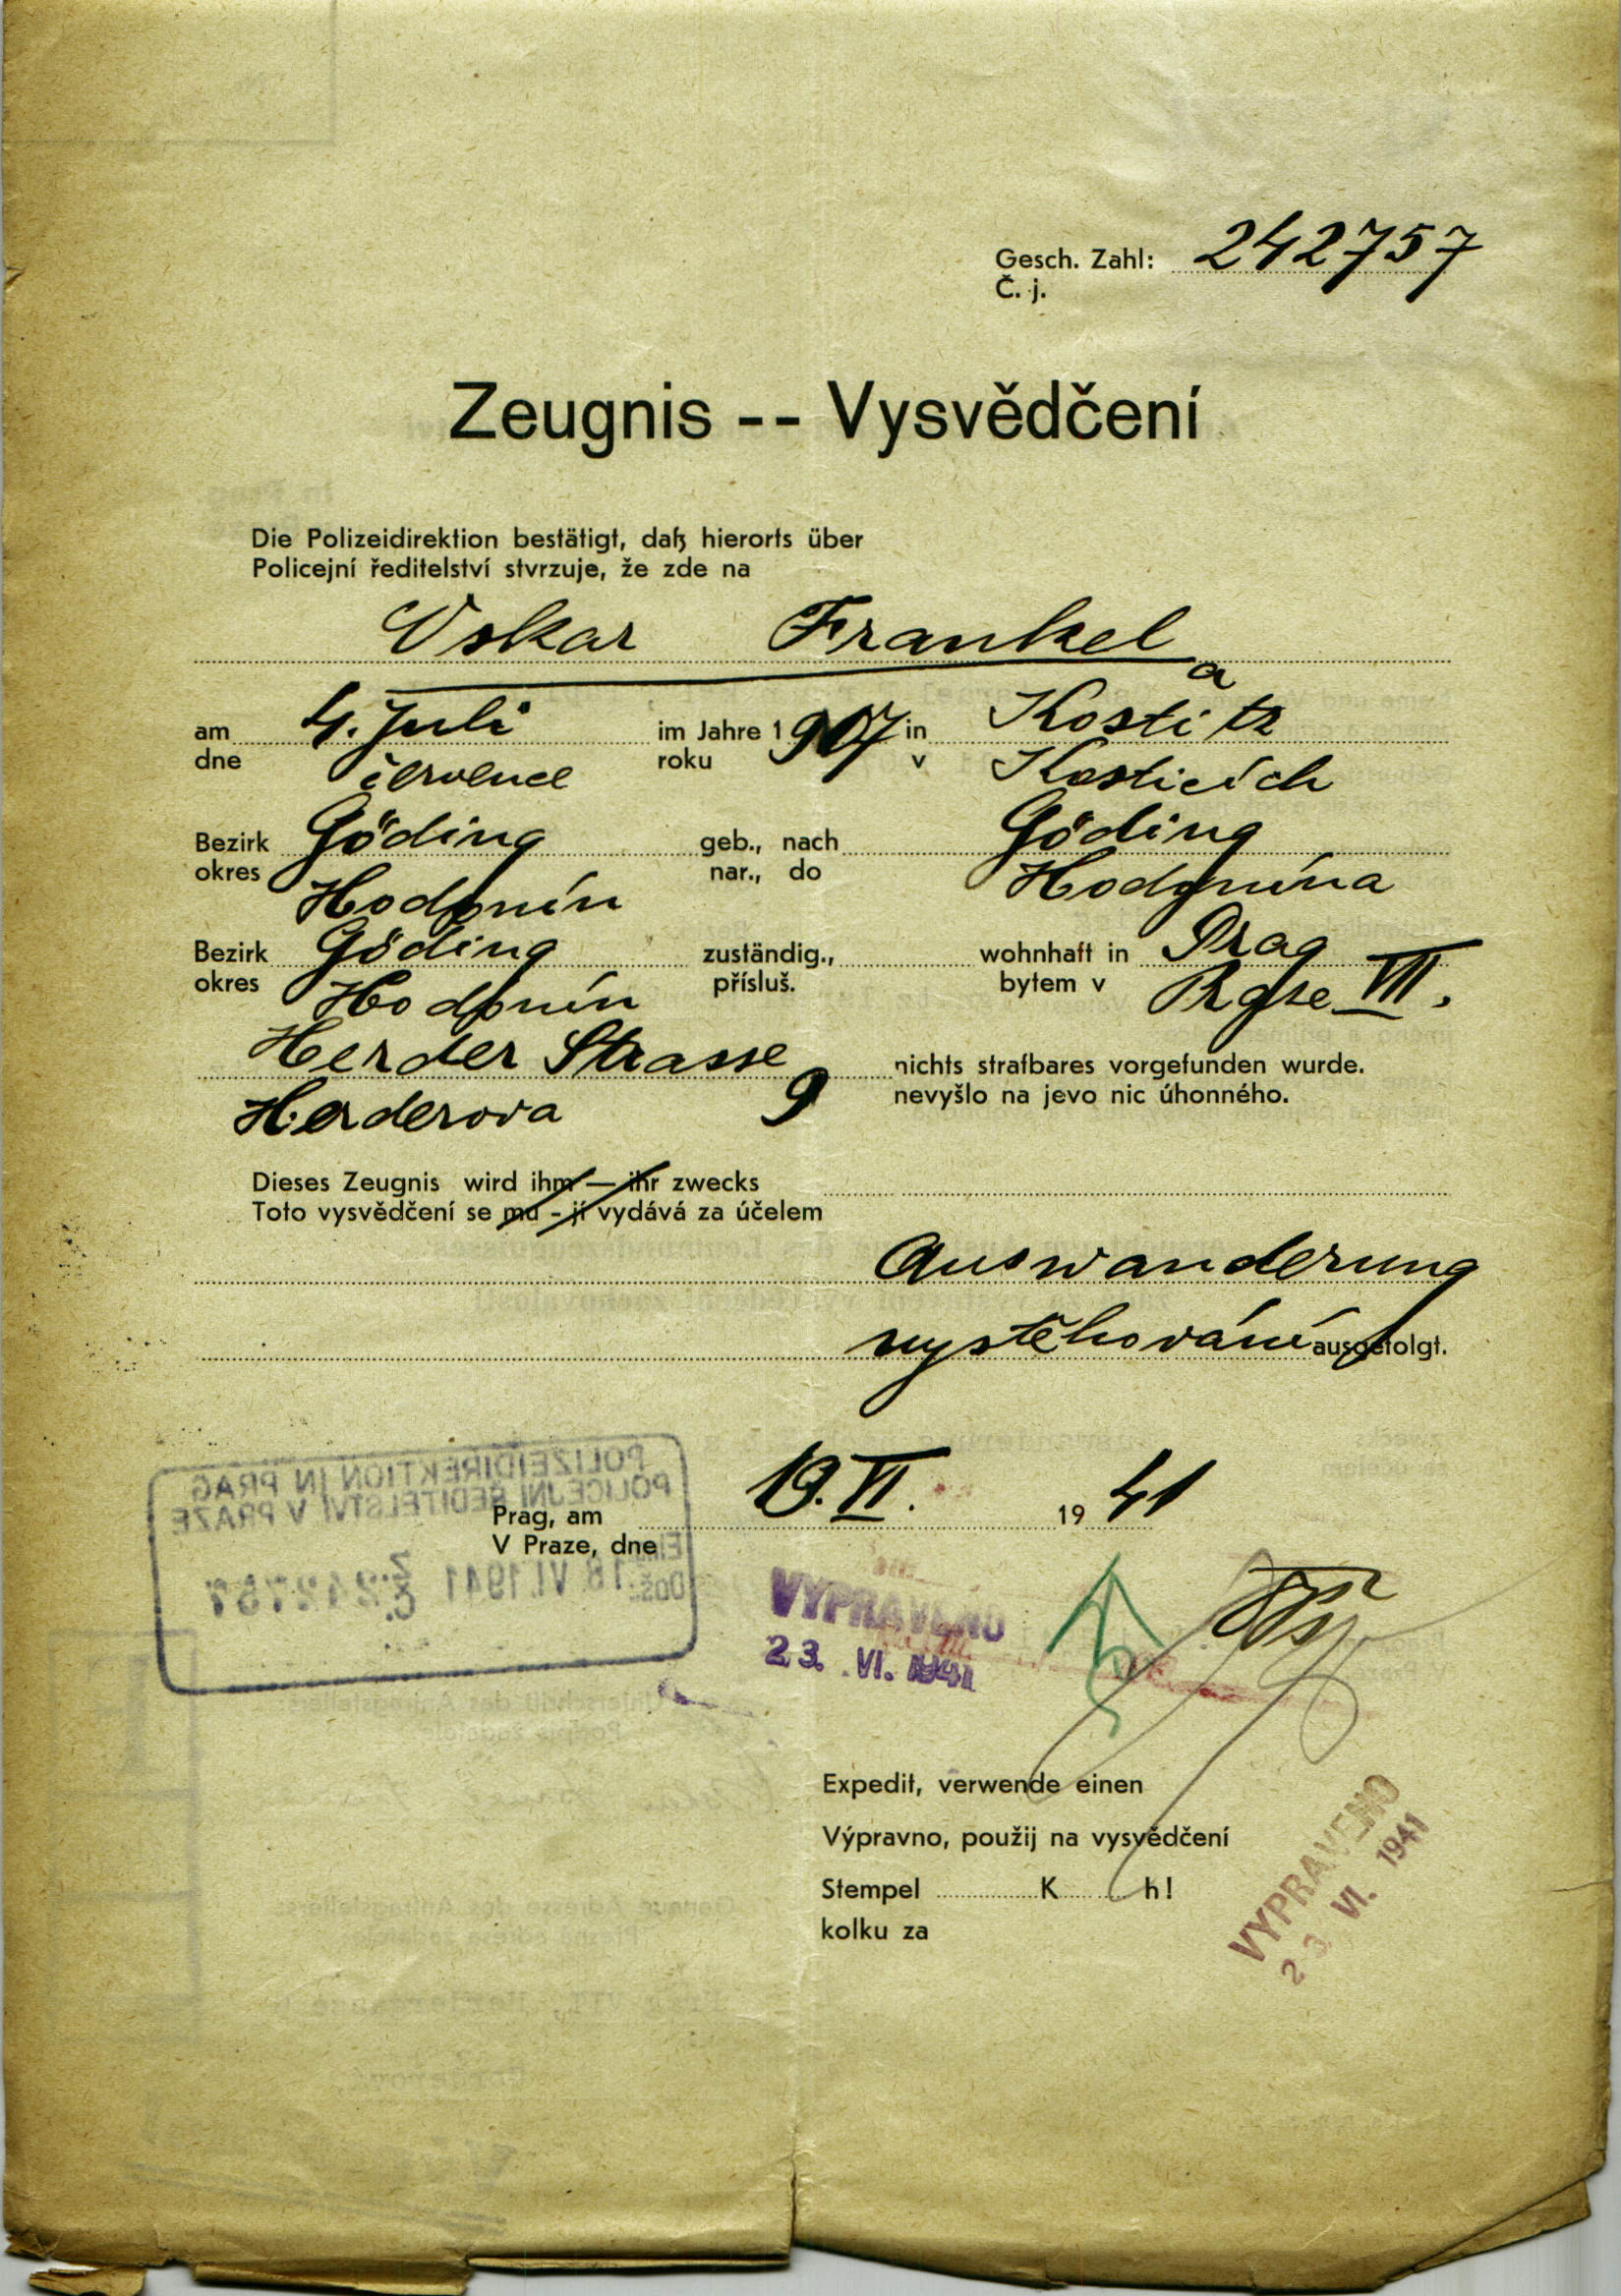 Gesch. Zahl: 242757
Č. j.
Zeugnis -- Vysvědčení
Die Polizeidirektion bestätigt, daß hierorts über
Policejní ředitelství stvrzuje, že zde na
Oskar Frankel
a
am 4. Juli im Jahre 1907 in Kostitz
dne července roku v Kosticích
Bezirk Göding geb., nach Göding
okres Hodonín nar., do Hodonína
Bezirk Göding zuständig., wohnhaft in Prag
okres Hodonín přísluš. bytem v Praze VII.
Herder Strasse nichts strafbares vorgefunden wurde.
Herderova 9 nevyšlo na jevo nic úhonného.
Dieses Zeugnis wird ihm — ihr zwecks
Toto vysvědčení se mu - jí vydává za účelem
Auswanderung
vystěhování ausgefolgt.
POLIZEIDIREKTION IN PRAG
POLICEJNÍ ŘEDITELSTVÍ V PRAZE
Prag, am 19. VI. 19 41
V Praze, dne
Došlo: 18 VI. 1941 Z. Č. 242757
VYPRAVENO
23. VI. 1941
Expedit, verwende einen
Výpravno, použij na vysvědčení
Stempel K h!
kolku za
VYPRAVENO
23 VI. 1941